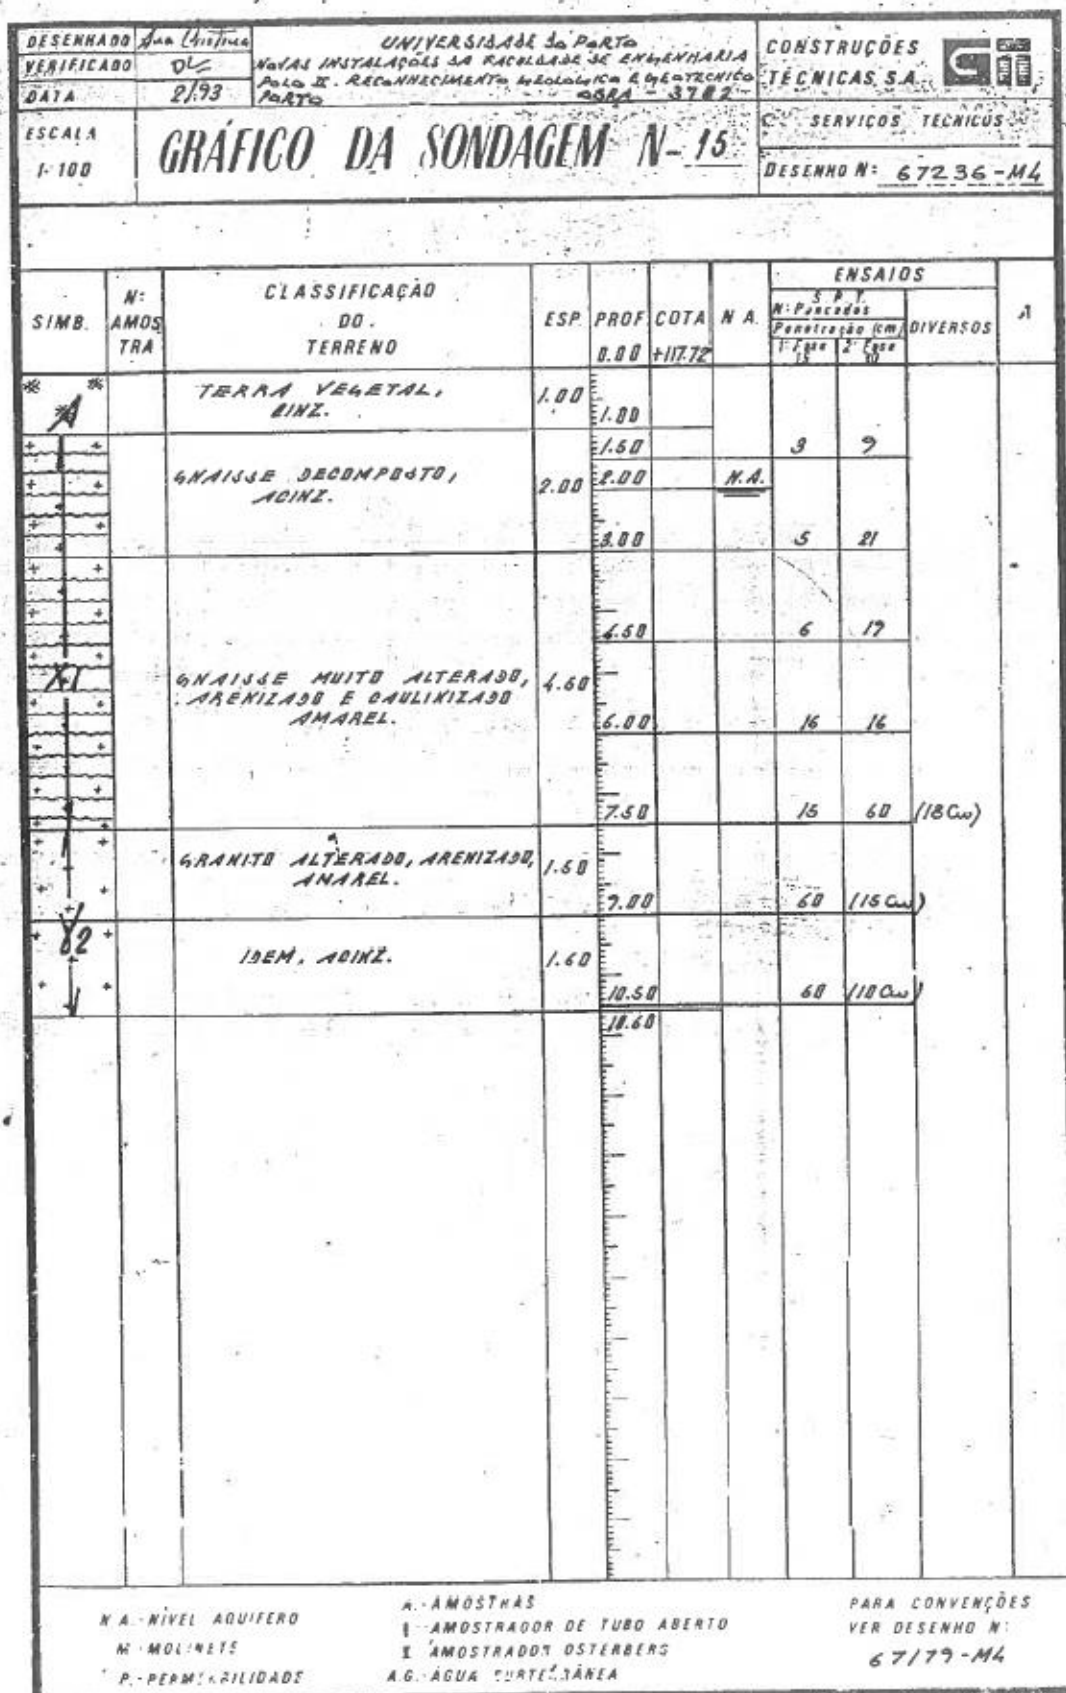 DESENHADO Ana Cristina
VERIFICADO
DATA 2/93
UNIVERSIDADE DO PORTO
NOVAS INSTALAÇÕES DA FACULDADE DE ENGENHARIA
POLO II. RECONHECIMENTO GEOLÓGICO E GEOTECNICO
PORTO OBRA - 3782
CONSTRUÇÕES
TÉCNICAS, S.A.
ESCALA
1-100
GRÁFICO DA SONDAGEM Nº 15
SERVIÇOS TECNICOS
DESENHO Nº: 67236-M4
SIMB.
Nº AMOSTRA
CLASSIFICAÇÃO
DO
TERRENO
ESP. PROF. COTA N A.
0.00 +117.72
ENSAIOS
S. P. T.
Nº Pancadas
Penetração (cm)
1ª Fase 2ª Fase
15 30
DIVERSOS
A
TERRA VEGETAL, 1.00
CINZ. 1.00
1.50 3 9
GNAISSE DECOMPOSTO, 2.00 2.00 N.A.
ACINZ.
3.00 5 21
4.50 6 19
X1 GNAISSE MUITO ALTERADO, 4.50
ARENIZADO E CAULINIZADO
AMAREL. 6.00 16 16
7.50 15 60 (18 Cm)
GRANITO ALTERADO, ARENIZADO, 1.50
AMAREL. 9.00 60 (15 Cm)
γ2
IDEM, ACINZ. 1.60
10.50 60 (10 Cm)
10.60
N A.-NÍVEL AQUIFERO
M-MOLINETE
P.-PERMEABILIDADE
A.-AMOSTRAS
-AMOSTRADOR DE TUBO ABERTO
AMOSTRADOR OSTERBERG
A.G.-ÁGUA SUBTERRÂNEA
PARA CONVENÇÕES
VER DESENHO Nº
67179-M4